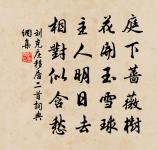 庭下薔薇樹
花開玉雪球
主人明日去
相對似含愁
劉克莊移居二首詞典
網集